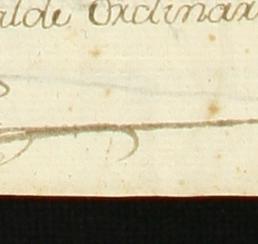 alde Ordinar